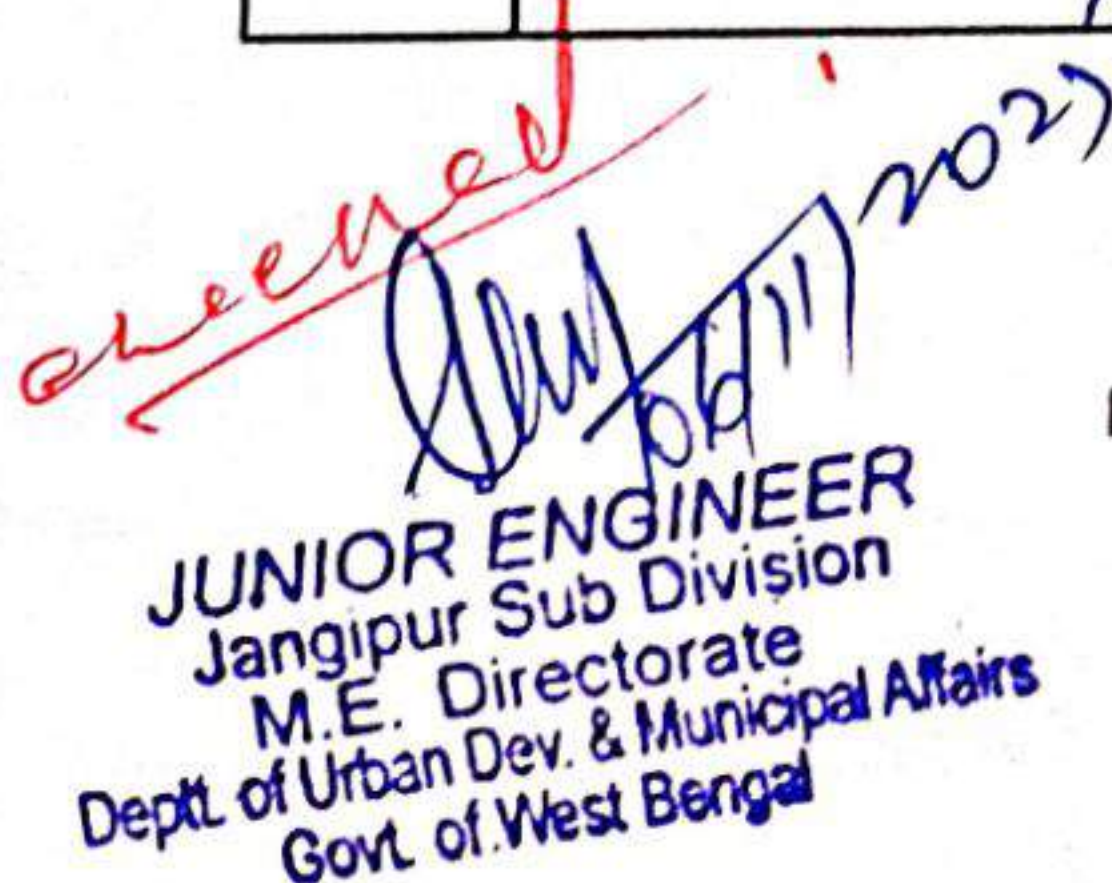 checked
06/11/202
JUNIOR ENGINEER
Jangipur Sub Division
M.E. Directorate
Deptt. of Urban Dev. & Municipal Affairs
Govt. of West Bengal